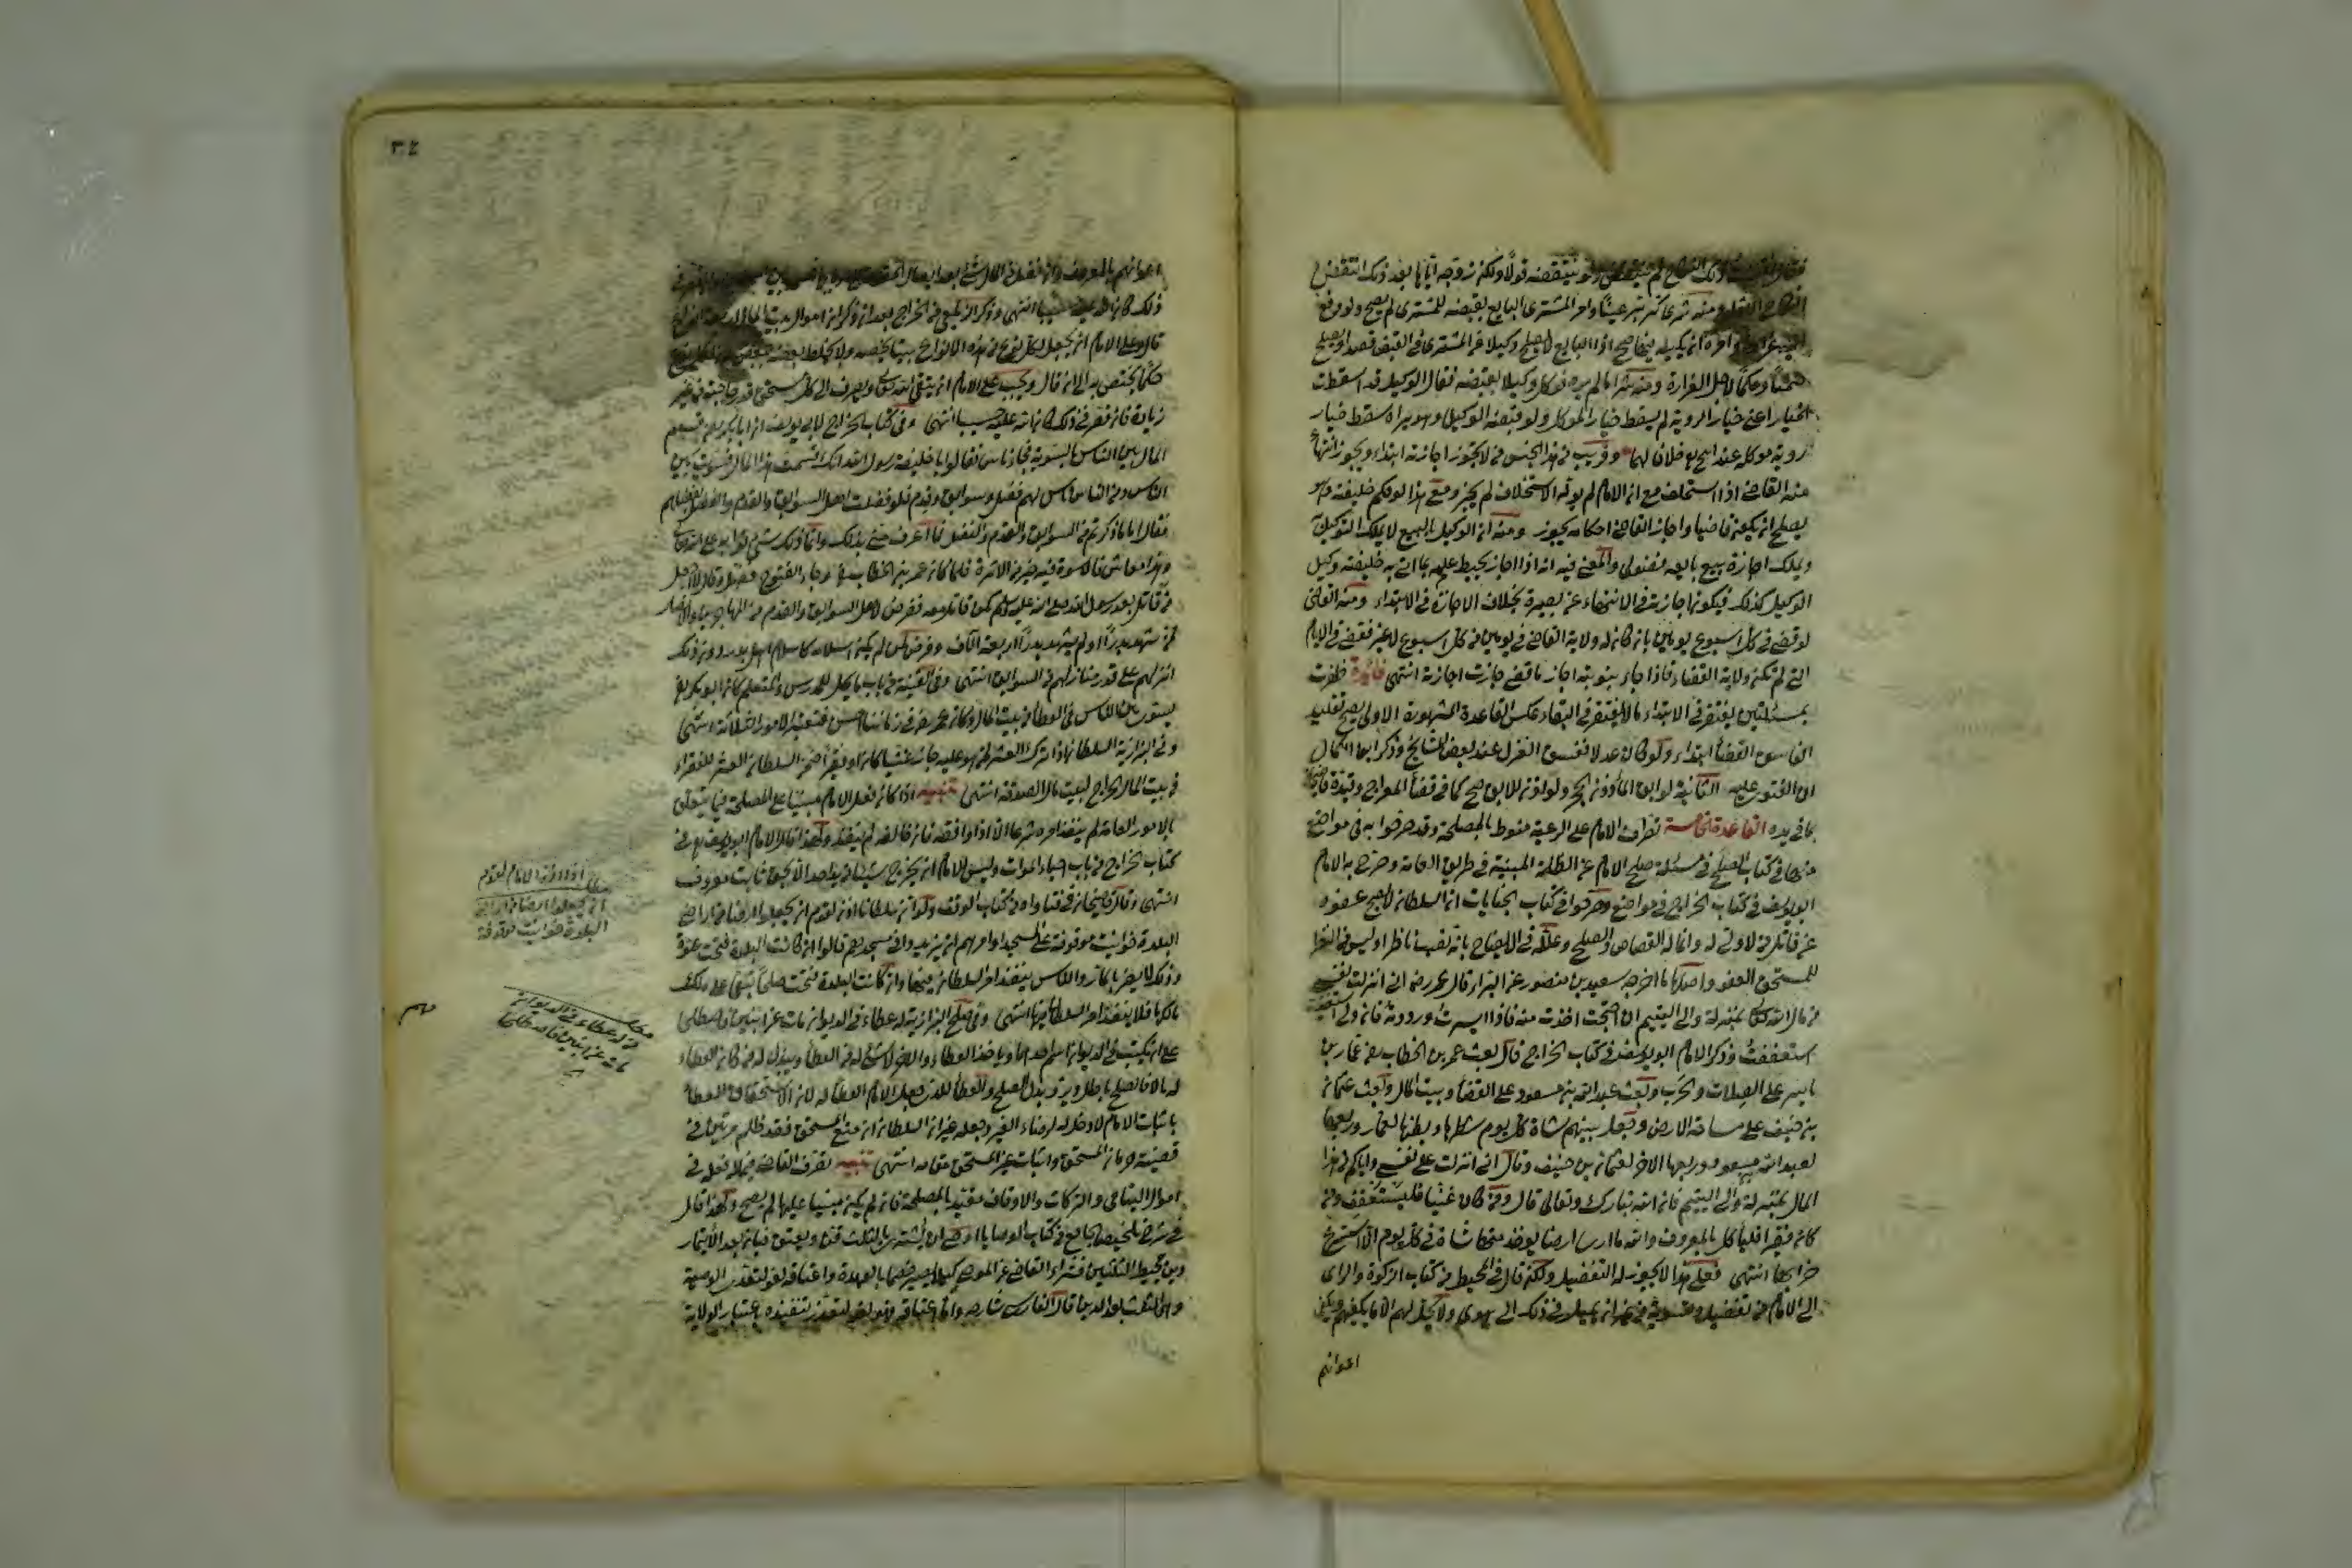 فقال نقضت ذلك النكاح لم ينتقض ولو لم ينقضه قولا ولكن زوجه اياها بعد ذلك انتقض
النكاح الاول ومنه شرى كر بر عينا وامر المشتري البايع بقبضه للمشتري لم يصح ولو دفع
اليه غرارة وامره ان يكيله فيها صح اذ البايع لا يصلح وكيلا عن المشتري في القبض قصدا ويصلح
ضمنا وحكما لاجل الغرارة ومنه شرى ما لم يره فوكل وكيلا بقبضه فقال الوكيل قد اسقطت
الخيار اعني خيار الروية لم يسقط خيار الموكل ولو قبضه الوكيل وهو يراه سقط خيار
روية موكله عند ابي ح خلافا لهما وقريب من هذا الجنس من لا يجوز اجازته ابتداء ويجوز انتهاء
منه القاضي اذا استخلف مع ان الامام لم يوله الاستخلاف لم يجز ومع هذا لو حكم خليفته وهو
يصلح ان يكون قاضيا واجاز القاضي احكامه يجوز ومنه ان الوكيل بالبيع لا يملك التوكيل
ويملك اجازة بيع بايعه فضولي والمعنى فيه انه اذا اجاز يحيط علمه بما اتى به خليفته وكيل
الوكيل كذلك فيكون اجازته في الانتهاء عن بصيرة بخلاف الاجازة في الابتداء ومنه القاضي
لو قضى في كل اسبوع يومين بان كان له ولاية القضاء في يومين من كل اسبوع لا غير فقضى في الايام
التي لم تكن ولاية القضاء فاذا جاء نوبته اجاز ما قضى جازت اجازته انتهى فائدة ظفرت
بمسئلتين يغتفر في الابتداء ما لا يغتفر في البقاء عكس القاعدة المشهورة الاولى يصح تقليد
الفاسق القضاء ابتداء ولو كان عدلا ففسق انعزل عند بعض المشايخ وذكر ابن الكمال
ان الفتوى عليه الثانية لو ابق المأذون انحجر ولو اذن للابق صح كما في قضاء المعراج وقيده قاضيخان
بما في يده القاعدة الخامسة تصرف الامام على الرعية منوط بالمصلحة وقد صرحوا به في مواضع
منها في كتاب الصلح في مسئلة صلح الامام عن الظلة المبنية في طريق العامة وصرح به الامام
ابو يوسف في كتاب الخراج في مواضع وصرحوا في كتاب الجنايات ان السلطان لا يصح عفوه
عن قاتل من لا ولي له وانما له القصاص والصلح وعلله في الايضاح بانه نصب ناظرا وليس من النظر
للمستحق العفو واصلها ما اخرجه سعيد بن منصور عن البراء قال قال عمر رضه اني انزلت نفسي
من مال الله تعالى بمنزلة والي اليتيم ان احتجت اخذت منه فاذا ايسرت رددته فان استغنيت
استعففت وذكر الامام ابو يوسف في كتاب الخراج قال بعث عمر بن الخطاب رضه عمار بن
ياسر على الصلات والحرب وبعث عبد الله بن مسعود على القضاء وبيت المال وبعث عثمان
بن حنيف على مساحة الارض وجعل بينهم شاة كل يوم شطرها وبطنها لعمار وربعها
لعبد الله بن مسعود وربعها الاخر لعثمان بن حنيف وقال اني انزلت على نفسي واياكم من هذا
المال بمنزلة والي اليتيم فان الله تبارك وتعالى قال ومن كان غنيا فليستعفف ومن
كان فقيرا فليأكل بالمعروف والله ما ارى ارضا يوخذ منها شاة في كل يوم الا استسرع
خرابها انتهى فعلى هذا لا يجوز له التفضيل ولكن قال في المحيط من كتاب الزكوة والراي
الى الامام من تفضيل وتسوية من غير ان يميل في ذلك الى هوى ولا يحل لهم الا ما يكفيهم ويكفي
اعوانهم
٣٤
اعوانهم بالمعروف وان فضل من المال شيء بعد ايصال الحقوق
ذلك كان الله عليه حسيبا انتهى وذكر الزيلعي من الخراج بعد ان ذكر ان اموال بيت المال اربعة انواع
قال وعلى الامام ان يجعل لكل نوع من هذه الانواع بيتا يخصه ولا يخلط بعضه ببعض لان لكل نوع
حكما يختص به الى ان قال ويجب على الامام ان يتقي الله تعالى ويصرف الى كل مستحق قدر حاجته من غير
زيادة فان قصر في ذلك كان الله عليه حسيبا انتهى وفي كتاب الخراج لابي يوسف ان ابا بكر رضه قسم
المال بين الناس بالسوية فجاء ناس فقالوا يا خليفة رسول الله انك قسمت هذا المال فسويت بين
الناس ومن الناس اناس لهم فضل وسوابق وقدم فلو فضلت اهل السوابق والقدم والفضل بفضلهم
فقال اما ما ذكرتم من السوابق والقدم والفضل فما اعرفني بذلك وانما ذلك شيء ثوابه على الله تعالى
وهذا معاش فالاسوة فيه خير من الاثرة فلما كان عمر بن الخطاب رضه وجاء الفتوح فضل وقال لا اجعل
من قاتل بعد رسول الله صلى الله عليه وسلم كمن قاتل معه ففرض لاهل السوابق والقدم من المهاجرين والانصار
ممن شهد بدرا او لم يشهد بدرا اربعة آلاف وفرض لمن كان اسلامه كاسلام اهل بدر دون ذلك
انزلهم على قدر منازلهم من السوابق انتهى وفي القنية من باب ما يحل للمدرس والمتعلم كان ابو بكر رضه
يسوي بين الناس في العطاء من بيت المال وكان عمر رضه
وفي البزازية السلطان اذا ترك العشر لمن هو عليه جاز غنيا كان او فقيرا ضمن السلطان العشر للفقراء
من بيت المال الخراج لبيت مال الصدقة انتهى تنبيه اذا كان فعل الامام مبنيا على المصلحة فيما يتعلق
بالامور العامة لم ينفذ امره شرعا الا اذا وافقه فان خالفه لم ينفذ ولهذا قال الامام ابو يوسف رح في
كتاب الخراج من باب احياء الموات وليس للامام ان يخرج شيئا من يد احد الا بحق ثابت معروف
انتهى وقال قاضيخان في فتاواه من كتاب الوقف ولو ان سلطانا اذن لقوم ان يجعلوا ارضا من اراضي
البلدة حوانيت موقوفة على المسجد او امرهم ان يزيدوا في مسجدهم قالوا ان كانت البلدة فتحت عنوة
وذلك لا يضر بالمار والناس ينفذ امر السلطان فيها وان كانت البلدة فتحت صلحا تبقى على ملك
مالكها فلا ينفذ امر السلطان فيها انتهى وفي صلح البزازية له عطاء في الديوان مات عن ابنين فاصطلحا
على ان يكتب في الديوان اسم احدهما وياخذ العطاء والاخر لا شيء له من العطاء ويبذل له من كان العطاء
له مالا فالصلح باطل ويرد بدل الصلح والعطاء للذي جعل الامام العطاء له لان الاستحقاق للعطاء
باثبات الامام لا دخل له لرضاء الغير وجعله غير ان السلطان ان منع المستحق فقد ظلم مرتين في
قضية حرمان المستحق واثبات غير المستحق مقامه انتهى تنبيه تصرف القاضي فيما له فعله في
اموال اليتامى والتركات والاوقاف مقيد بالمصلحة فان لم يكن مبنيا عليها لم يصح ولهذا قال
في شرح تلخيص الجامع من كتاب الوصايا اوصى ان يشترى بالثلث قن ويعتق فبان بعد الائتمار
دين يحيط بالثلثين فشراء القاضي عن الموصي كيلا يصير خصما بالعهدة واعتاقه لغو لتعذر الوصية
وهي الثلث بعد الدين قال الفارسي شارحه وانما اعتاقه فهو لغو لتعذر تنفيذه باعتبار الولاية
اذا اذن الامام لقوم
ان يجعلوا ارضا من اراضي
البلدة حوانيت موقوفة
من له عطاء في الديوان
مات عن ابنين فاصطلحا
مهم